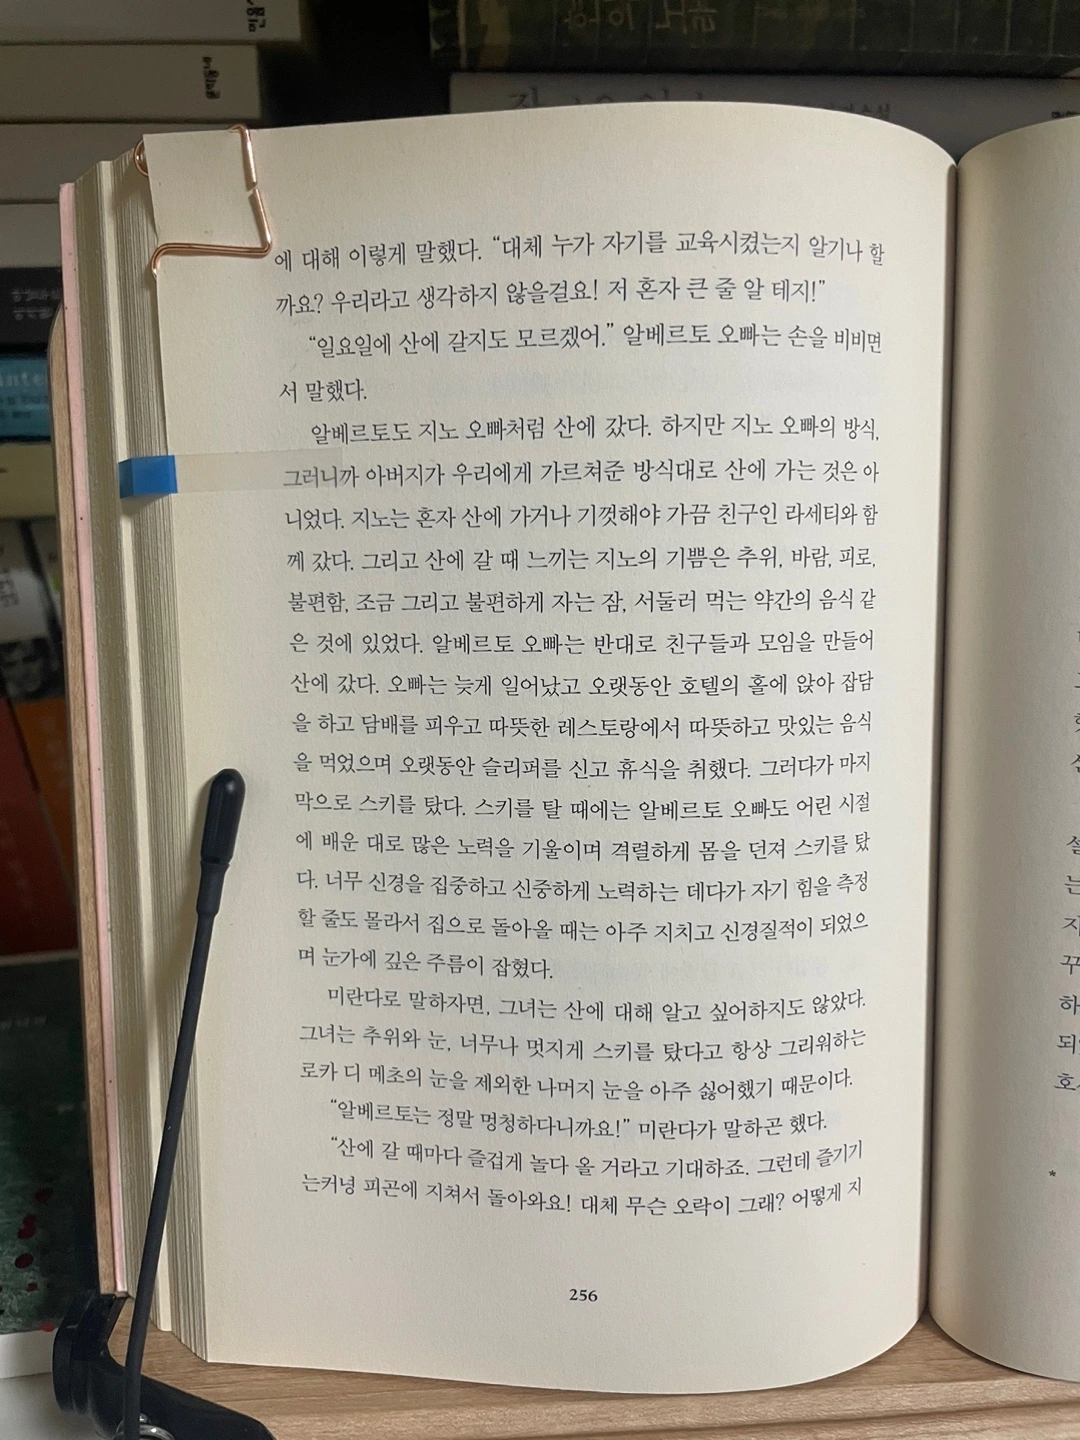 에 대해 이렇게 말했다. “대체 누가 자기를 교육시켰는지 알기나 할
까요? 우리라고 생각하지 않을걸요! 저 혼자 큰 줄 알 테지!”
“일요일에 산에 갈지도 모르겠어.” 알베르토 오빠는 손을 비비면
서 말했다.
알베르토도 지노 오빠처럼 산에 갔다. 하지만 지노 오빠의 방식,
그러니까 아버지가 우리에게 가르쳐준 방식대로 산에 가는 것은 아
니었다. 지노는 혼자 산에 가거나 기껏해야 가끔 친구인 라세티와 함
께 갔다. 그리고 산에 갈 때 느끼는 지노의 기쁨은 추위, 바람, 피로,
불편함, 조금 그리고 불편하게 자는 잠, 서둘러 먹는 약간의 음식 같
은 것에 있었다. 알베르토 오빠는 반대로 친구들과 모임을 만들어
산에 갔다. 오빠는 늦게 일어났고 오랫동안 호텔의 홀에 앉아 잡담
을 하고 담배를 피우고 따뜻한 레스토랑에서 따뜻하고 맛있는 음식
을 먹었으며 오랫동안 슬리퍼를 신고 휴식을 취했다. 그러다가 마지
막으로 스키를 탔다. 스키를 탈 때에는 알베르토 오빠도 어린 시절
에 배운 대로 많은 노력을 기울이며 격렬하게 몸을 던져 스키를 탔
다. 너무 신경을 집중하고 신중하게 노력하는 데다가 자기 힘을 측정
할 줄도 몰라서 집으로 돌아올 때는 아주 지치고 신경질적이 되었으
며 눈가에 깊은 주름이 잡혔다.
미란다로 말하자면, 그녀는 산에 대해 알고 싶어하지도 않았다.
그녀는 추위와 눈, 너무나 멋지게 스키를 탔다고 항상 그리워하는
로카 디 메초의 눈을 제외한 나머지 눈을 아주 싫어했기 때문이다.
“알베르토는 정말 멍청하다니까요!” 미란다가 말하곤 했다.
“산에 갈 때마다 즐겁게 놀다 올 거라고 기대하죠. 그런데 즐기기
는커녕 피곤에 지쳐서 돌아와요! 대체 무슨 오락이 그래? 어떻게 지
256